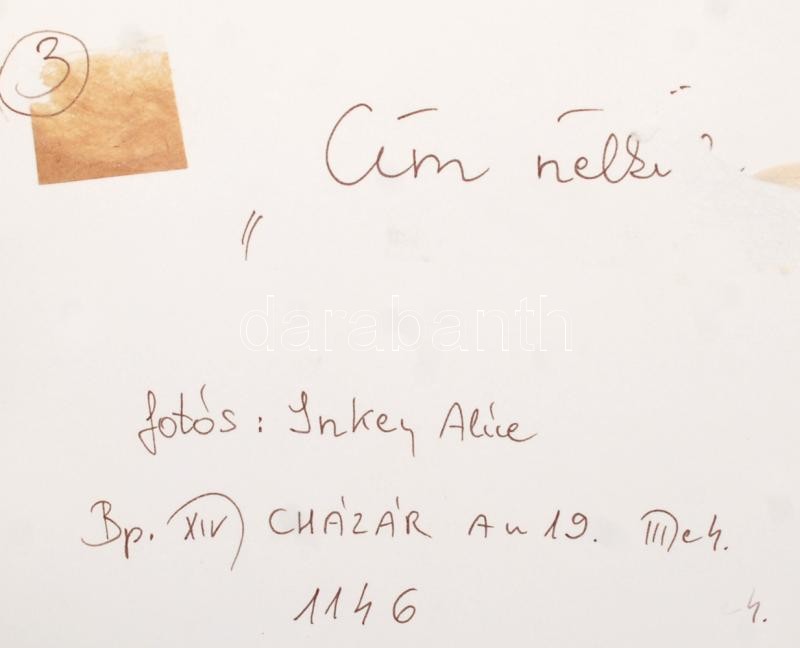 3
Cím nélkü
"
darabanth
fotós: Inkey Alice
Bp. XIV) CHÁZÁR A u 19. III) e 4.
1146
4.